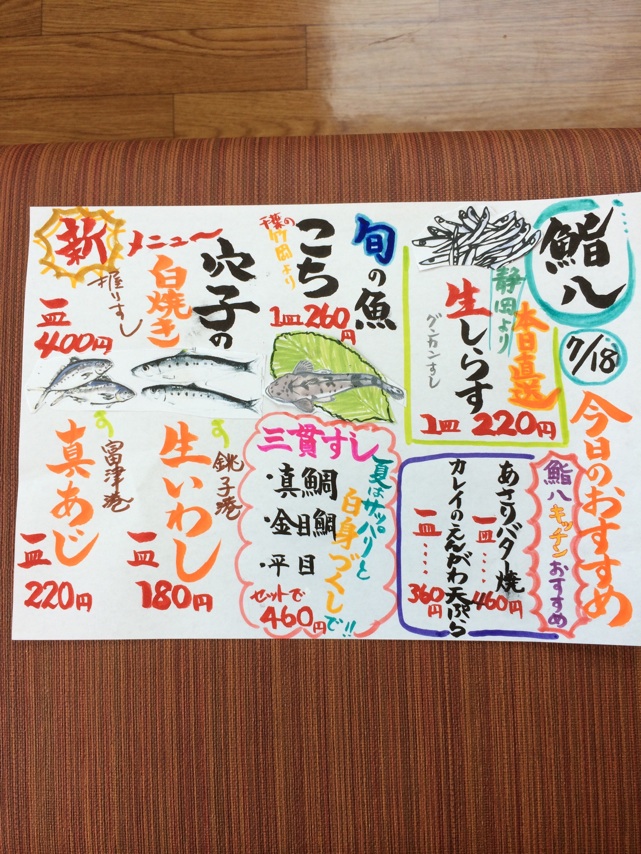 鮨八
7/18
今日のおすすめ
静岡より
本日直送
生しらす
グンカンすし
1皿 220円
鮨八キッチンおすすめ
あさりバター焼
一皿‥‥460円
カレイのえんがわ天ぷら
一皿‥‥360円
旬の魚
こち
千葉の竹岡より
1皿 260円
新メニュー
穴子の
白焼き
握りすし
一皿
400円
三貫すし
夏はサッパリと
白身づくしで!!
・真鯛
・金目鯛
・平目
セットで
460円
銚子港
生いわし
一皿
180円
富津港
真あじ
一皿
220円